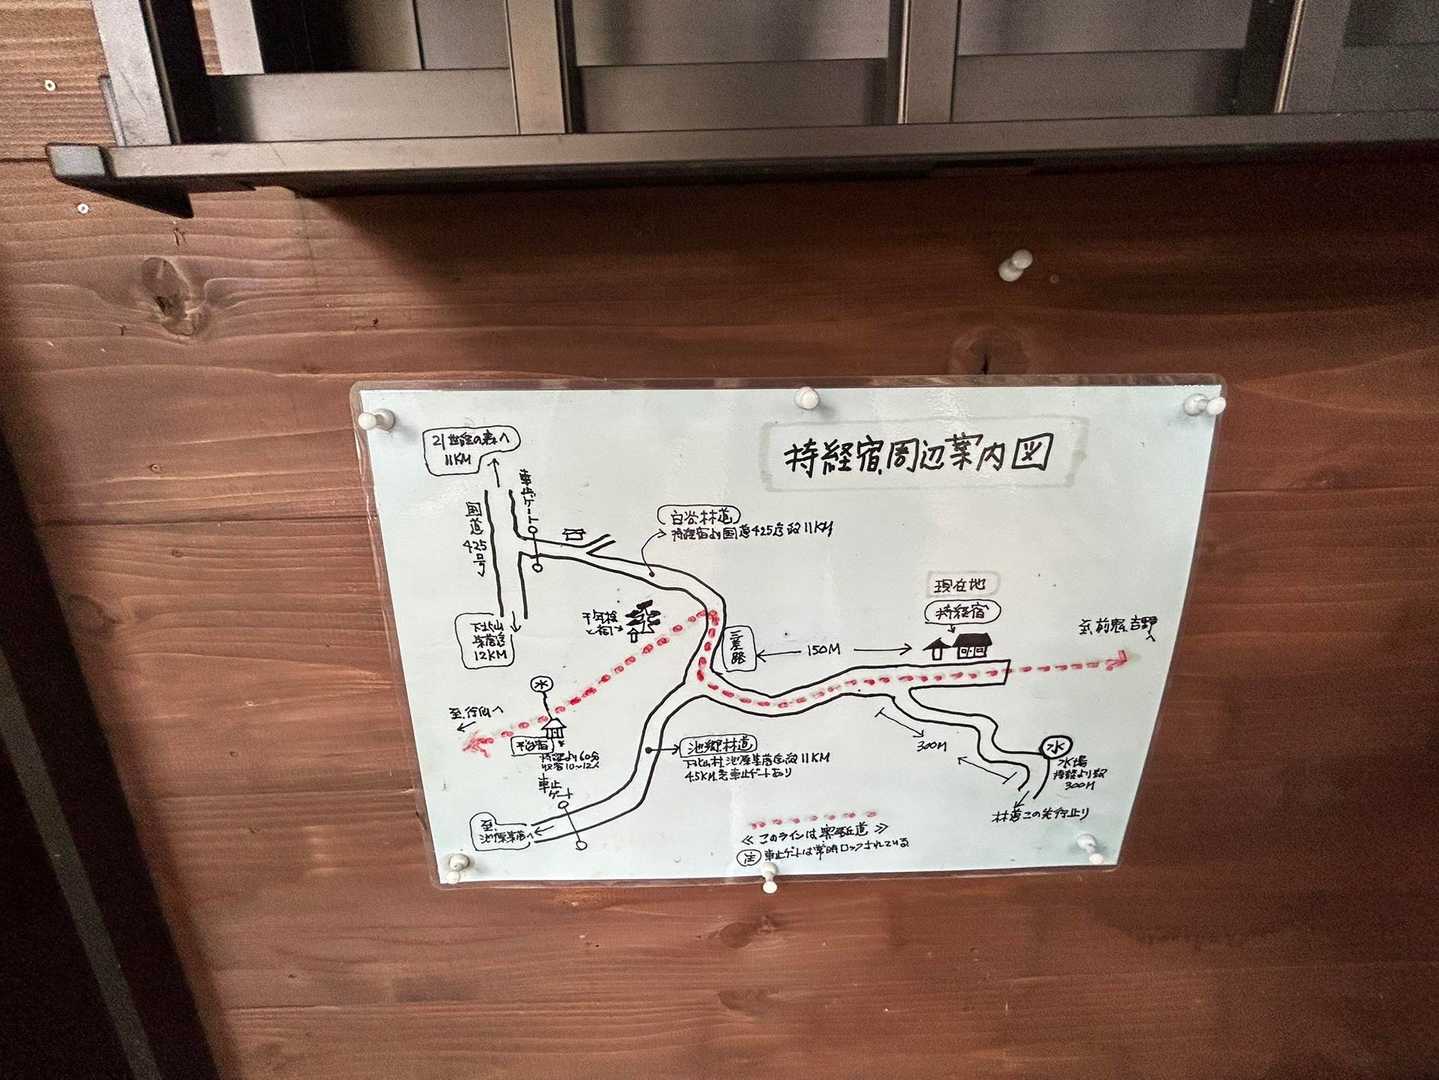 持経宿周辺案内図
21世紀の森へ
11KM
車止ゲート
国道425号
下北山
集落迄
12KM
白谷林道
持経宿より国道425迄約11KM
千年桧
と祠
三差路
150M
現在地
持経宿
至.前鬼.吉野へ
至.行仙へ
水
平治宿
持経より60分
収容10~12人
車止
ゲート
至.
池原集落へ
池郷林道
下北山村池原集落迄約11KM
4.5KM先車止ゲートあり
300M
水
水場
持経より約
300M
林道この先行止り
≪このラインは奥駈道≫
注 車止ゲートは常時ロックされている